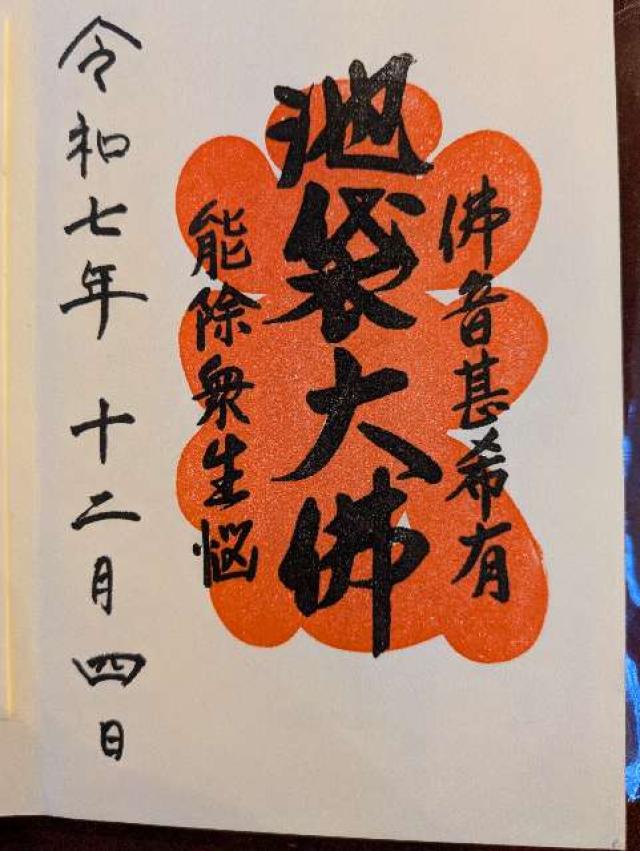 佛音甚希有
池袋大佛
能除衆生悩
令和七年 十二月四日